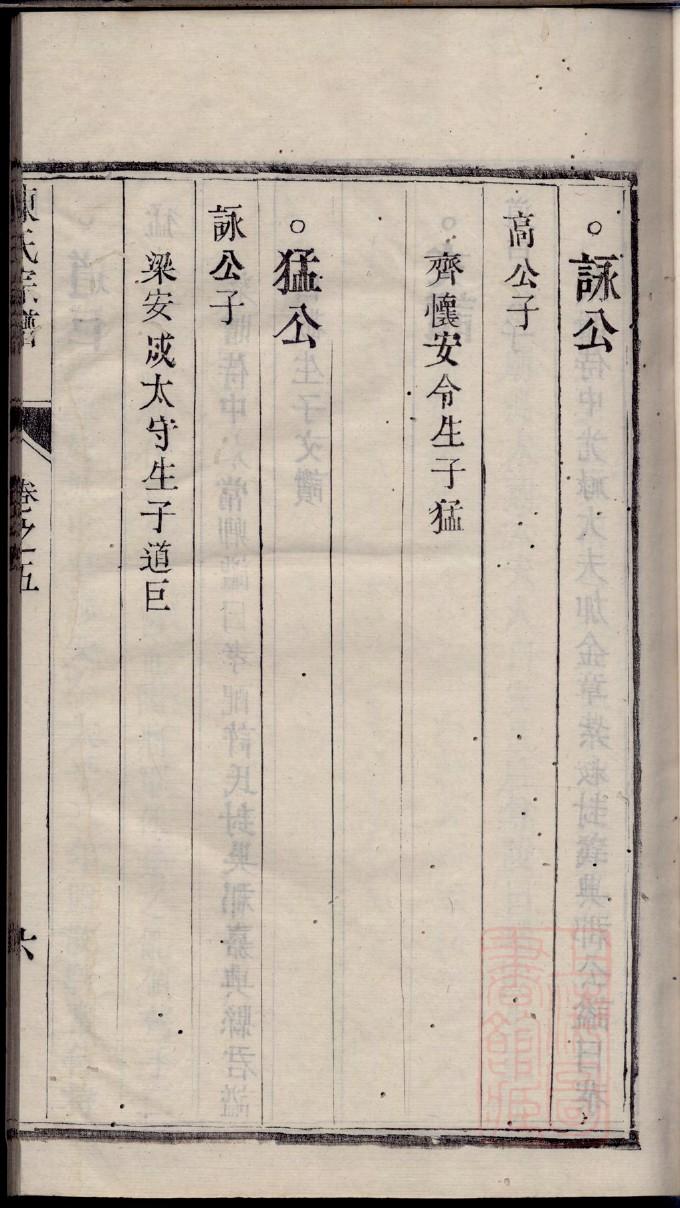 ○詠公
高公子
齊懷安令生子猛
○猛公
詠公子
梁安成太守生子道巨
陳氏宗譜
卷之五
六